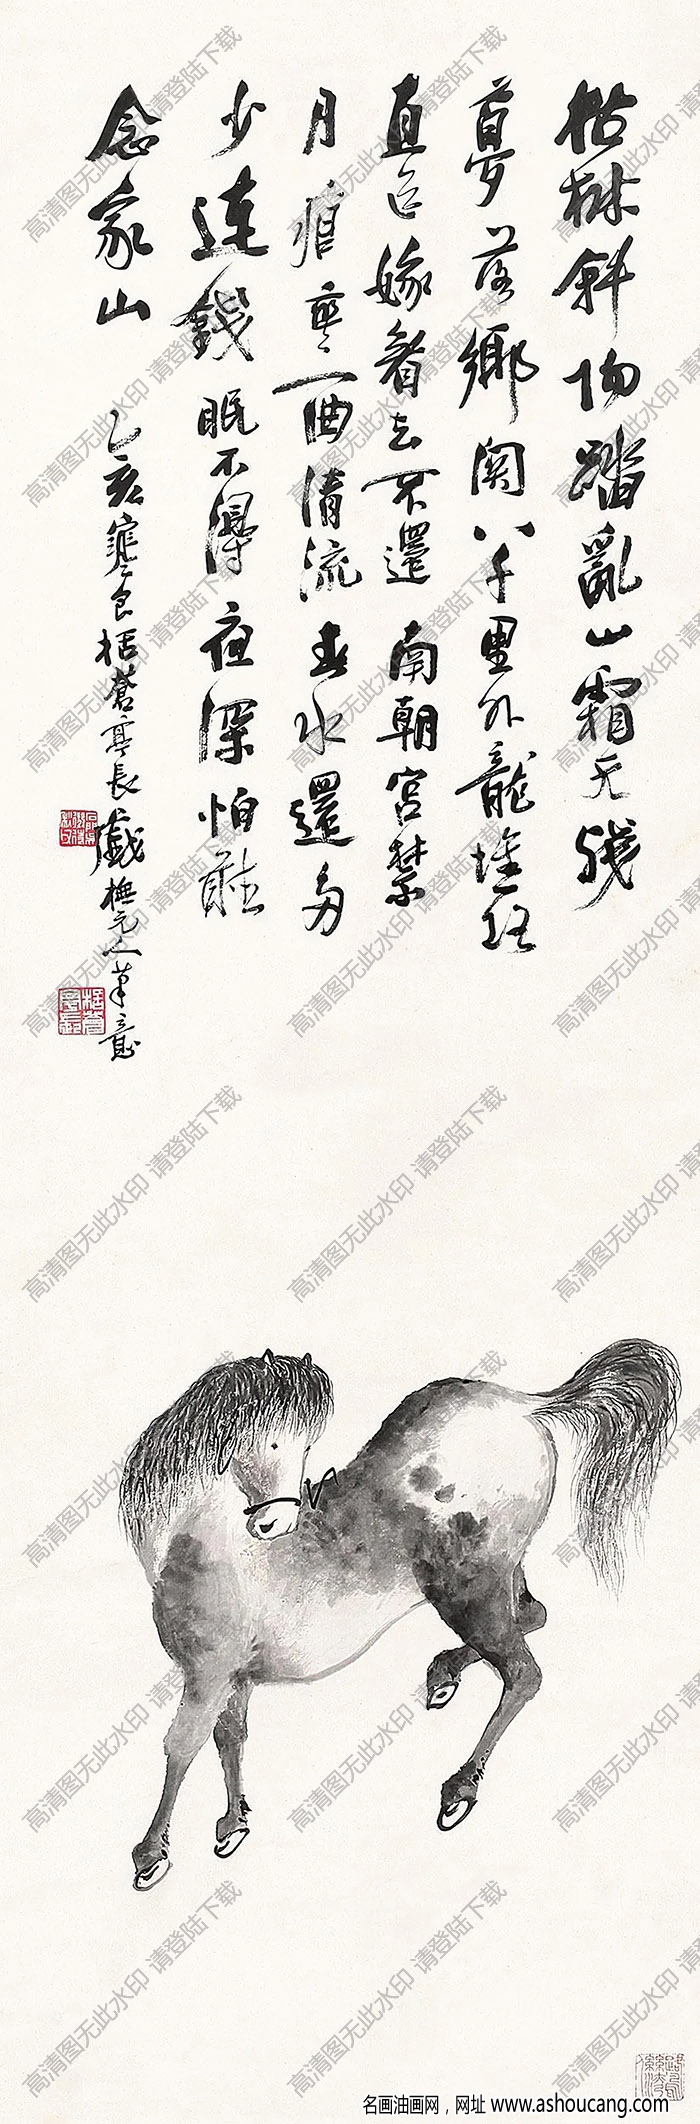 枯林斜陽踏亂山霜天殘
夢落鄉關八千里外龍堆路
直送嫁者去不還南朝宮禁
月痕寒一曲清流春水還多
少連錢眠不得夜深怕聽
念家山
乙亥寒食栝蒼亭長戲橅元人筆意
高清图无此水印 请登陆下载
名画油画网，网址 www.ashoucang.com